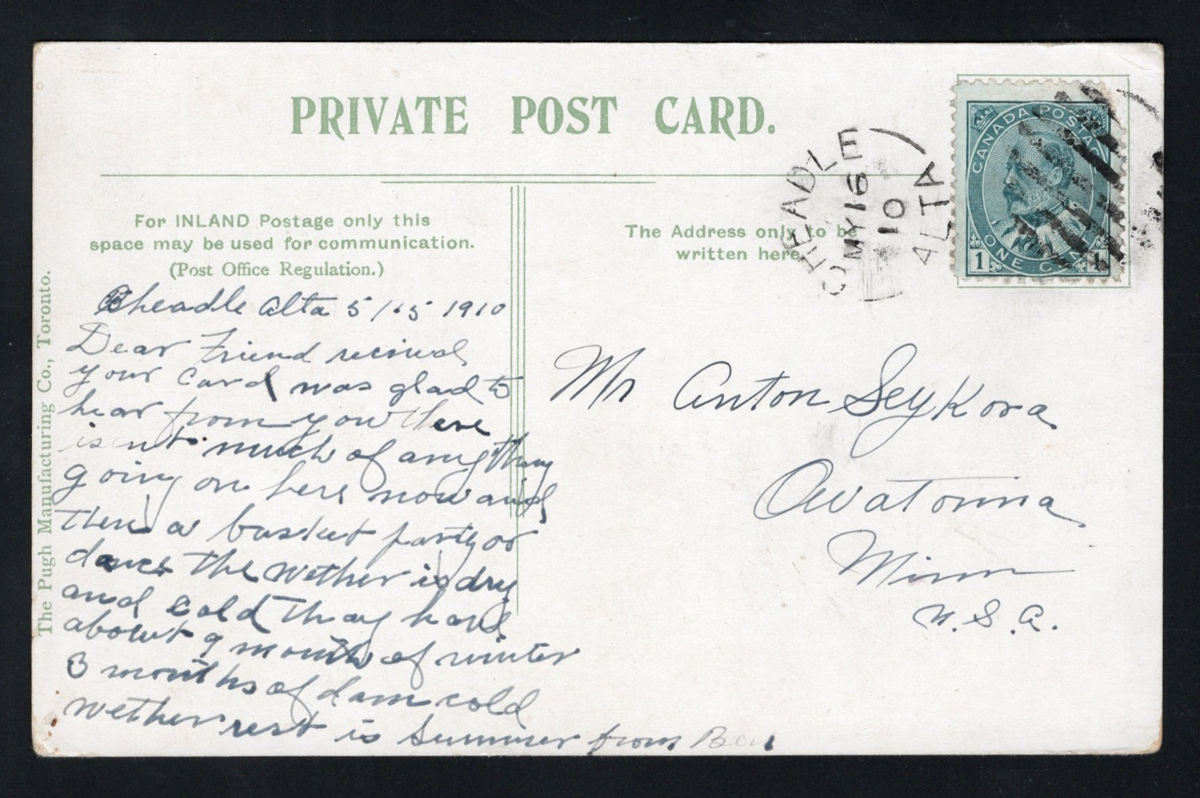 PRIVATE POST CARD.
For INLAND Postage only this
space may be used for communication.
(Post Office Regulation.)
The Address only to be
written here
CHEADLE
MY 16
10
ALTA
CANADA POSTAGE
ONE CENT
1
1
The Pugh Manufacturing Co., Toronto.
Cheadle Alta 5/15 1910
Dear Friend recived
your Card was glad to
hear from you there
is nt much of anything
going on here now and
then a basket party or
dance the wether is dry
and cold thay have
about 9 months of winter
3 months of dam cold
wether rest is Summer from
Mr Anton Seykora
Owatonna
Minn
U.S.A.